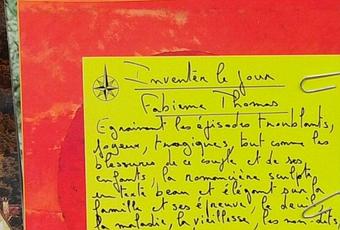 Inventer le jour
Fabienne Thomas
Egrainant les épisodes troublants,
joyeux, tragiques, tout comme les
blessures de ce couple et de ses
enfants, la romancière sculpte
un texte beau et élégant sur la
famille et ses épreuves, le deuil,
la maladie, la vieillesse, les non-dits,